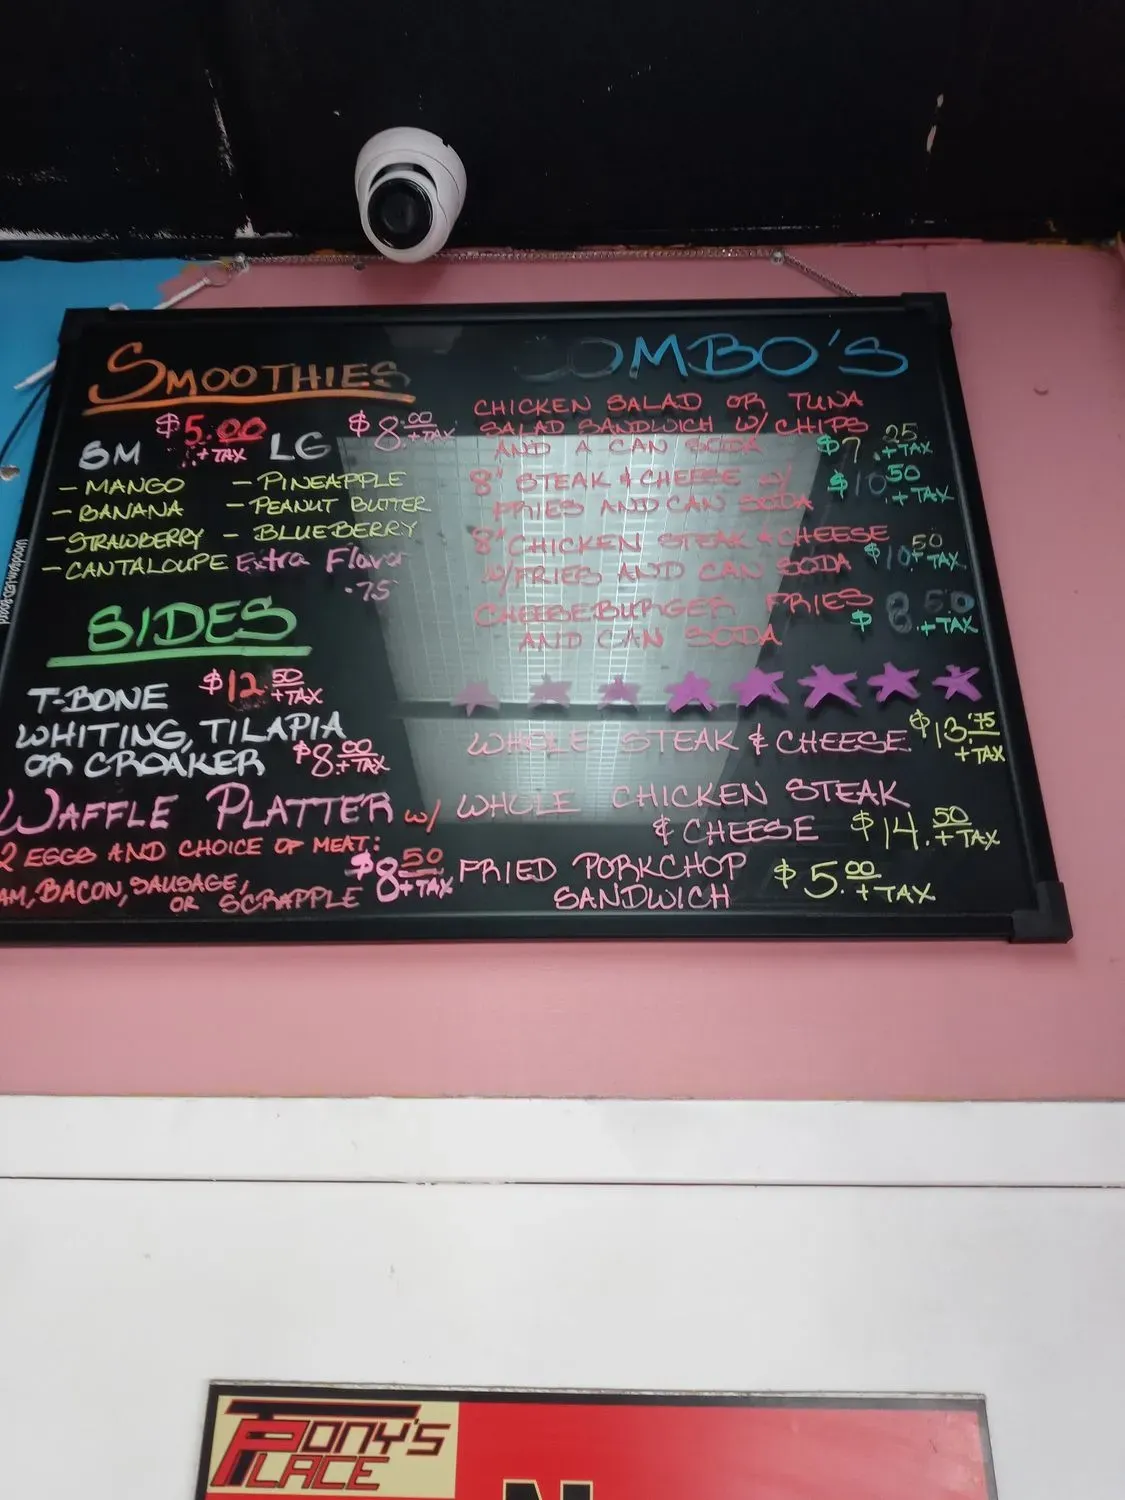 SMOOTHIES
SM $5.00 +TAX LG $8.00 +TAX
- MANGO - PINEAPPLE
- BANANA - PEANUT BUTTER
- STRAWBERRY - BLUEBERRY
- CANTALOUPE Extra Flavor
.75
SIDES
T-BONE $12.50 +TAX
WHITING, TILAPIA
OR CROAKER $8.00 +TAX
WAFFLE PLATTER w/
2 EGGS AND CHOICE OF MEAT:
AM, BACON, SAUSAGE,
OR SCRAPPLE $8.50 +TAX
COMBO'S
CHICKEN SALAD OR TUNA
SALAD SANDWICH W/ CHIPS
AND A CAN SODA $7.25 +TAX
8" STEAK & CHEESE W/
FRIES AND CAN SODA $10.50 +TAX
8" CHICKEN STEAK & CHEESE
W/FRIES AND CAN SODA $10.50 +TAX
CHEESEBURGER FRIES
AND CAN SODA $8.50 +TAX
WHOLE STEAK & CHEESE $13.75 +TAX
WHOLE CHICKEN STEAK
& CHEESE $14.50 +TAX
FRIED PORKCHOP
SANDWICH $5.00 +TAX
TONY'S
PLACE